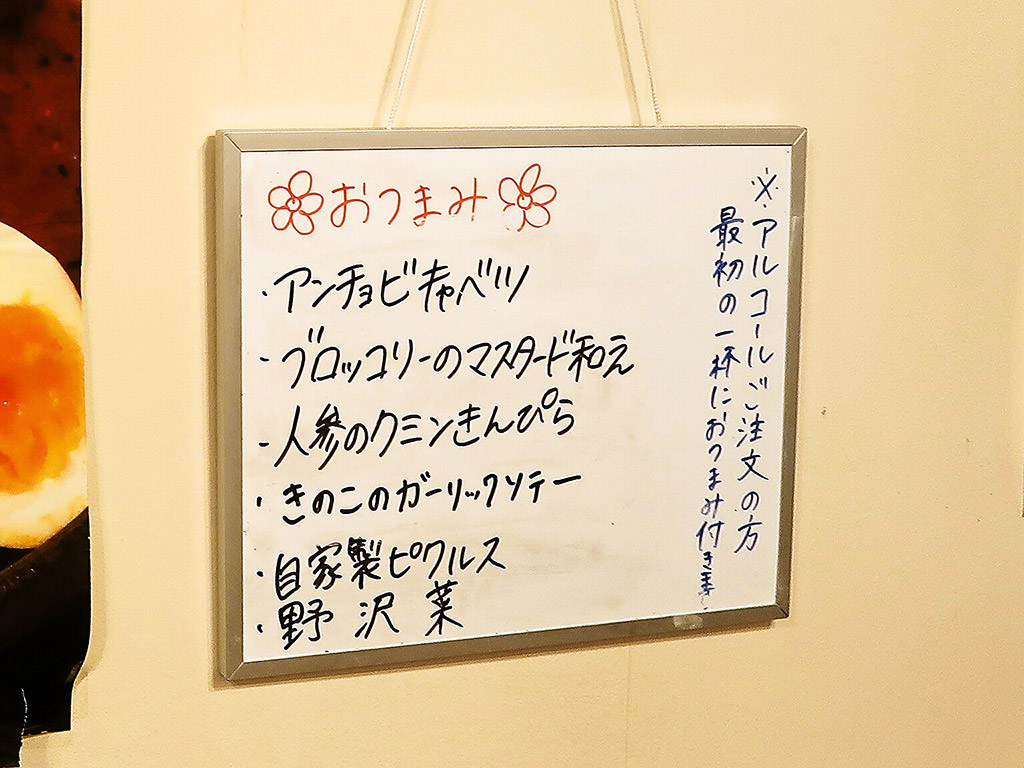 おつまみ
・アンチョビキャベツ
・ブロッコリーのマスタード和え
・人参のクミンきんぴら
・きのこのガーリックソテー
・自家製ピクルス
・野沢菜
※アルコールご注文の方
最初の一杯におつまみ付きます。